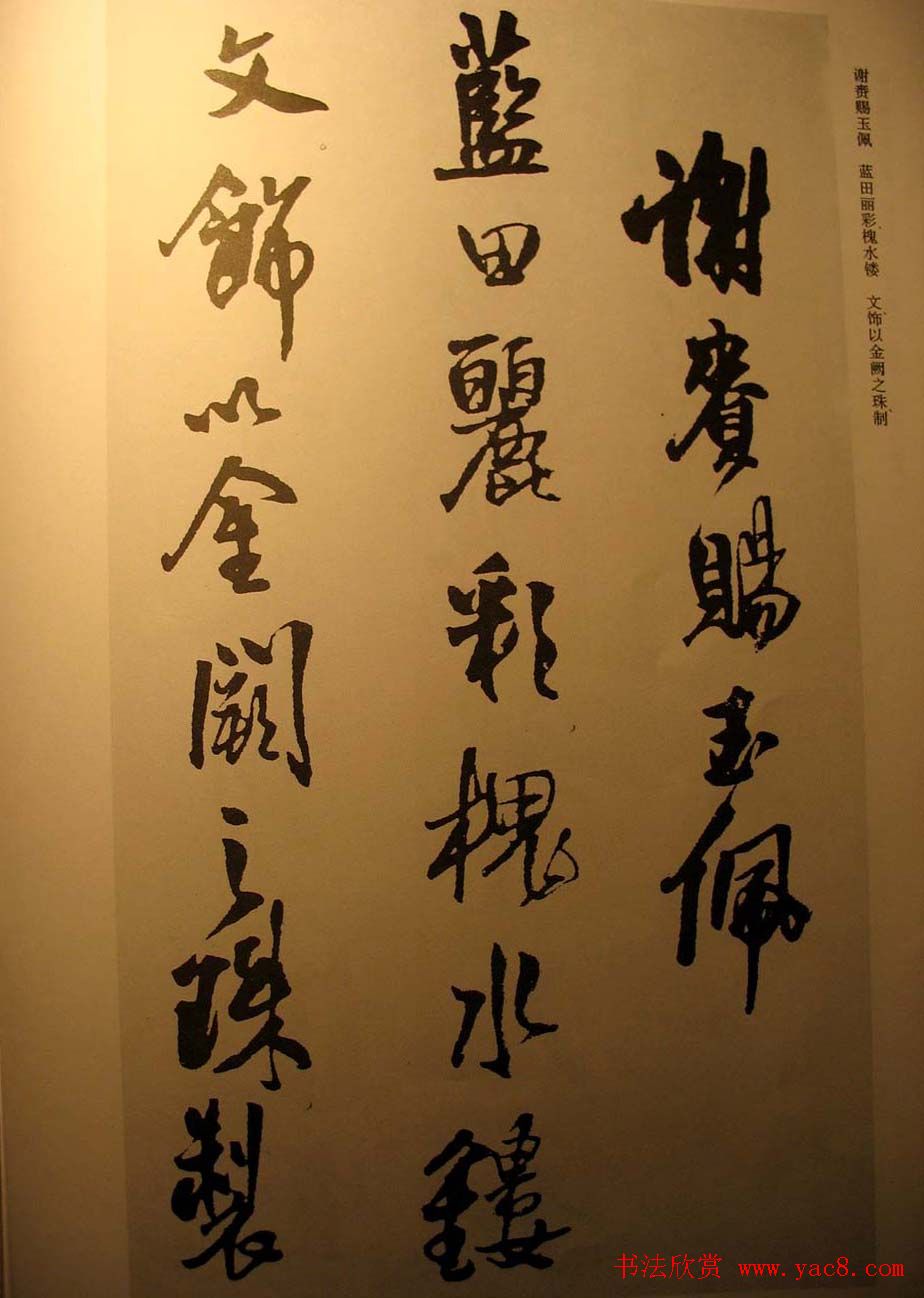 谢赉赐玉佩 蓝田丽彩、槐水镂 文、饰以金阙之珠、制
謝賚賜玉佩
藍田麗彩槐水鏤
文飾以金闕之珠製
书法欣赏 www.yac8.com